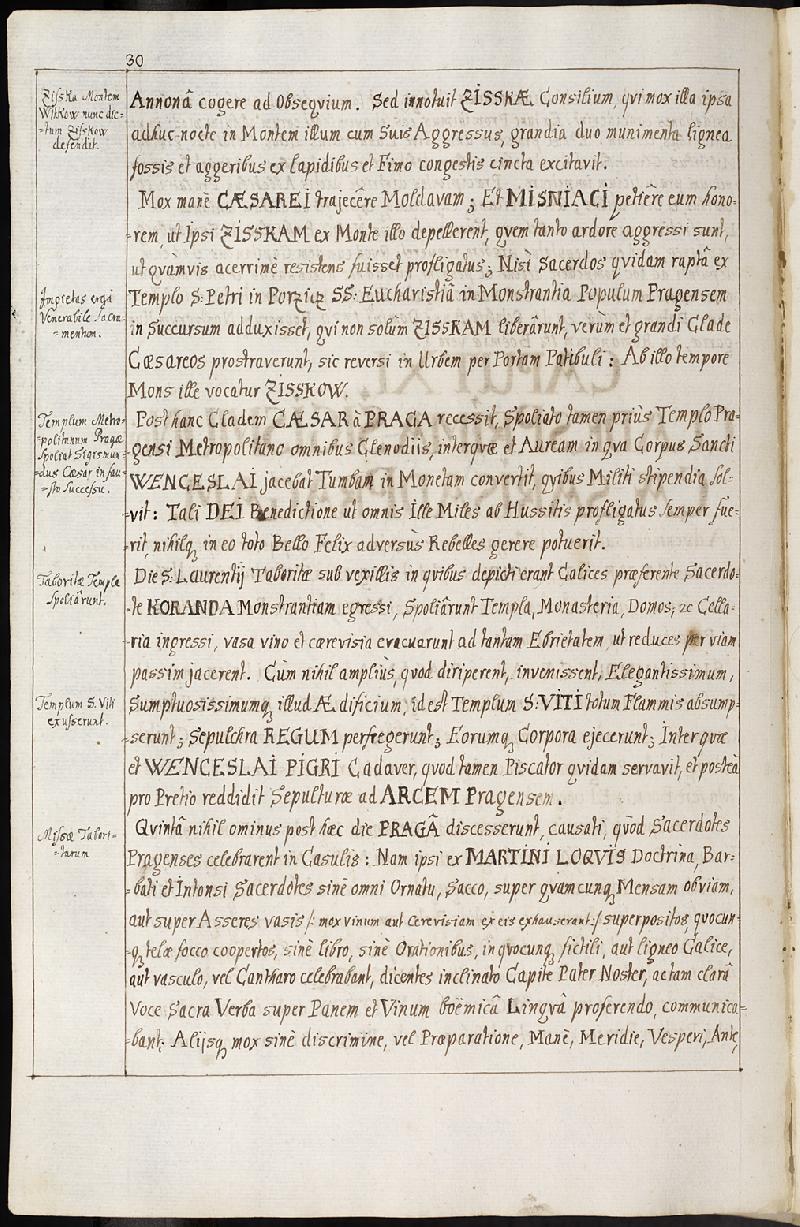 30
Zisska Montem
Witkow nunc dic-
-tum Zisskow
defendit.
Annonâ cogere ad Obseqvium. Sed innotuit ZISSKÆ Consilium, qvi mox illa ipsa
adhuc nocte in Montem illum cum suis Aggressus, grandia duo munimenta lignea
fossis et aggeribus ex lapidibus et Fimo congestis cincta excitavit.
Mox manè CÆSAREI trajecêre Moldavam; Et MISNIACI petiêre eum hono-
-rem, ut Ipsi ZISSKAM ex Monte illo depellerent, qvem tanto ardore aggressi sunt,
ut qvamvis acerrimè resistens fuisset profligatus; Nisi Sacerdos qvidam raptâ ex
Impietas erga
Venerabile Sacra-
-mentum.
Templo S: Petri in Porziez SS: Eucharistiâ in Monstrantia Populum Pragensem
in Succursum adduxisset, qvi non solùm ZISSKAM liberârunt, verùm et grandi Clade
Cæsareos prostraverunt, sic reversi in Urbem per Portam Patibuli: Ab illo tempore
Mons ille vocatur ZISSKOW.
Templum Metro-
-politanum Pragæ
Spoliat Sigismun-
-dus Cæsar infau-
-sto Successu.
Post hanc Cladem CÆSAR à PRAGA recessit, Spoliato tamen priùs Templo Pra-
-gensi Metropolitano omnibus Clenodiis, interqvæ et Auream in qva Corpus Sancti
WENCESLAI jacebat Tumbam in Monetam convertit, qvibus Militi stipendia sol-
-vit: Tali DEI Benedictione ut omnis Ille Miles ab Hussitis profligatus semper fue-
-rit, nihilq, in eo toto Bello Felix adversùs Rebelles gerere potuerit.
Taboritæ Templa
Spoliârunt.
Die S: Laurentij Taboritæ sub vexillis in qvibus depicti erant Calices præferente Sacerdo-
-te KORANDA Monstrantiam egressi, Spoliârunt Templa, Monasteria, Domos, &c Cella-
-ria ingressi, vasa vino et cærevisia evacuarunt ad tantam Ebrietatem, ut reduces per viam
passim jacerent. Cùm nihil ampliùs, qvod diriperent, invenissent, Elegantissimum,
Templum S. Viti
exusserunt.
Sumptuosissimumq, illud Ædificium, id est Templum S: VITI totum Flammis absump-
-serunt; Sepulchra REGUM perfregerunt; Eorumq, Corpora ejecerunt; Interqvæ
et WENCESLAI PIGRI Cadaver, qvod tamen Piscator qvidam servavit, et posteà
pro Pretio reddidit Sepulturæ ad ARCEM Pragensem.
Missæ Tabori-
-tarum
Qvintâ nihil ominus post hæc die PRAGÂ discesserunt, causati, qvòd Sacerdotes
Pragenses celebrarent in Casulis: Nam ipsi ex MARTINI LOQVIS Doctrina, Bar-
-bati et Intonsi Sacerdotes sinè omni Ornatu, Sacco, super qvamcunq, Mensam obviam,
aut super Asseres vasis /: mox vinum aut Cerevisiam ex eis exhauserant :/ superpositos qvocun-
-q, telæ socco coopertos, sinè libro, sinè Orationibus, in qvocunq, fictili, aut ligneo Calice,
aut vasculo, vel Cantharo celebrabant, dicentes inclinato Capite Pater Noster, ac tam clarâ
Voce Sacra Verba super Panem et Vinum boëmicâ Lingvâ proferendo, communica-
-bant: Alijsq, mox sinè discrimine, vel Præparatione, Manè, Meridie, Vesperi, Ante,